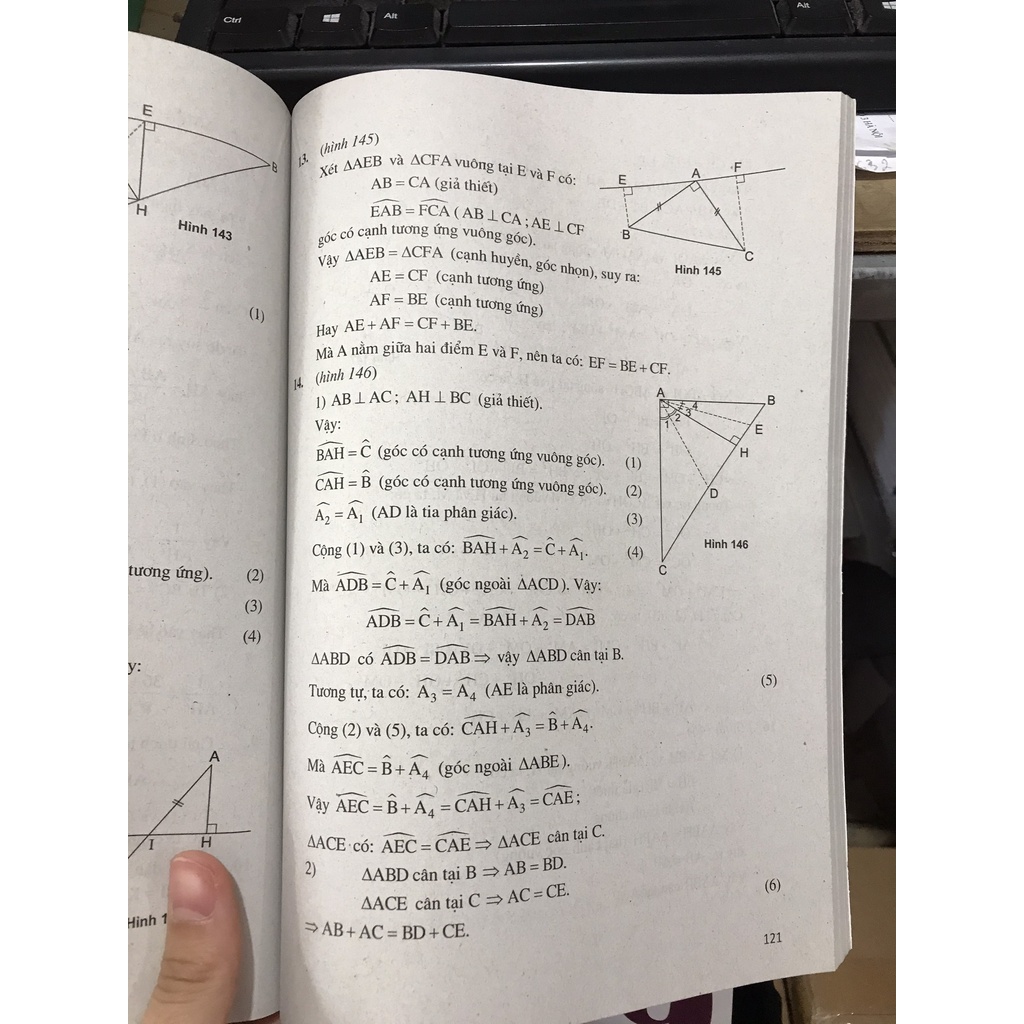 Ctrl
Alt
Alt
E
B
H
Hình 143
(1)
tương ứng). (2)
(3)
(4)
y:
A
I
H
Hình 1
13. (hình 145)
Xét ΔAEB và ΔCFA vuông tại E và F có:
AB = CA (giả thiết)
$\widehat{EAB} = \widehat{FCA}$ ( AB ⊥ CA ; AE ⊥ CF
góc có cạnh tương ứng vuông góc).
Vậy ΔAEB = ΔCFA (cạnh huyền, góc nhọn), suy ra:
AE = CF (cạnh tương ứng)
AF = BE (cạnh tương ứng)
Hay AE + AF = CF + BE.
Mà A nằm giữa hai điểm E và F, nên ta có: EF = BE + CF.
E
A
F
B
C
Hình 145
14. (hình 146)
1) AB ⊥ AC ; AH ⊥ BC (giả thiết).
Vậy:
$\widehat{BAH} = \hat{C}$ (góc có cạnh tương ứng vuông góc). (1)
$\widehat{CAH} = \hat{B}$ (góc có cạnh tương ứng vuông góc). (2)
$\widehat{A_2} = \widehat{A_1}$ (AD là tia phân giác). (3)
Cộng (1) và (3), ta có: $\widehat{BAH} + \widehat{A_2} = \hat{C} + \widehat{A_1}$. (4)
A
B
4
3
2
1
E
H
D
C
Hình 146
Mà $\widehat{ADB} = \hat{C} + \widehat{A_1}$ (góc ngoài ΔACD). Vậy:
$\widehat{ADB} = \hat{C} + \widehat{A_1} = \widehat{BAH} + \widehat{A_2} = \widehat{DAB}$
ΔABD có $\widehat{ADB} = \widehat{DAB}$ ⇒ vậy ΔABD cân tại B.
Tương tự, ta có: $\widehat{A_3} = \widehat{A_4}$ (AE là phân giác). (5)
Cộng (2) và (5), ta có: $\widehat{CAH} + \widehat{A_3} = \hat{B} + \widehat{A_4}$.
Mà $\widehat{AEC} = \hat{B} + \widehat{A_4}$ (góc ngoài ΔABE).
Vậy $\widehat{AEC} = \hat{B} + \widehat{A_4} = \widehat{CAH} + \widehat{A_3} = \widehat{CAE}$ ;
ΔACE có: $\widehat{AEC} = \widehat{CAE}$ ⇒ ΔACE cân tại C.
2) ΔABD cân tại B ⇒ AB = BD.
ΔACE cân tại C ⇒ AC = CE. (6)
⇒ AB + AC = BD + CE.
121